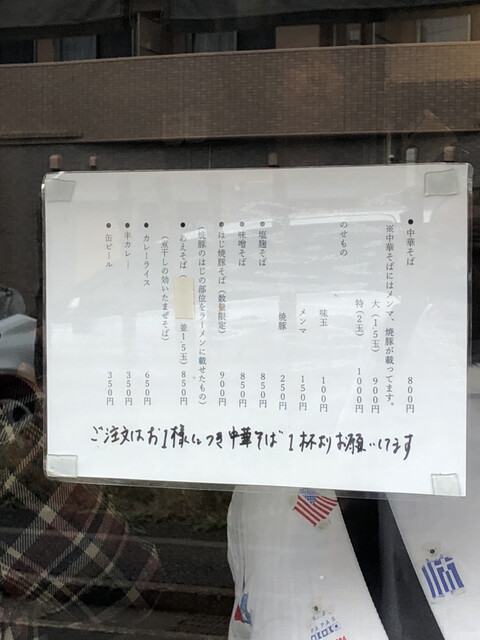 ●中華そば 800円
※中華そばにはメンマ、焼豚が載ってます。
大（1.5玉） 900円
特（2玉） 1000円
のせもの
味玉 100円
メンマ 150円
焼豚 250円
●塩麹そば 850円
●味噌そば 850円
●はじ焼豚そば（数量限定） 900円
（焼豚のはじの部位をラーメンに載せたもの）
●あえそば（ 並1.5玉） 850円
（煮干しの効いたまぜそば）
●カレーライス 650円
●半カレー 350円
●缶ビール 350円
ご注文はお1様につき中華そば1杯よりお願いしてます